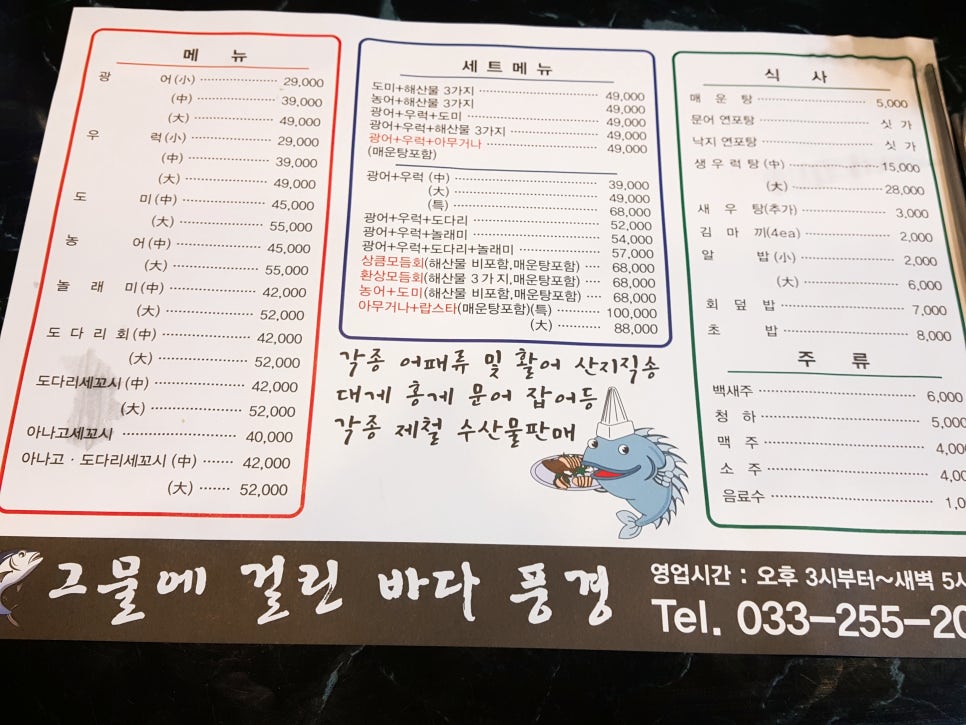 메 뉴
광 어(小) 29,000
(中) 39,000
(大) 49,000
우 럭(小) 29,000
(中) 39,000
(大) 49,000
도 미(中) 45,000
(大) 55,000
농 어(中) 45,000
(大) 55,000
놀 래 미(中) 42,000
(大) 52,000
도 다 리 회(中) 42,000
(大) 52,000
도다리세꼬시(中) 42,000
(大) 52,000
아나고세꼬시 40,000
아나고·도다리세꼬시(中) 42,000
(大) 52,000
세트메뉴
도미+해산물 3가지 49,000
농어+해산물 3가지 49,000
광어+우럭+도미 49,000
광어+우럭+해산물 3가지 49,000
광어+우럭+아무거나 49,000
(매운탕포함)
광어+우럭 (中) 39,000
(大) 49,000
(특) 68,000
광어+우럭+도다리 52,000
광어+우럭+놀래미 54,000
광어+우럭+도다리+놀래미 57,000
상큼모듬회(해산물 비포함,매운탕포함) 68,000
환상모듬회(해산물 3가지,매운탕포함) 68,000
농어+도미(해산물 비포함,매운탕포함) 68,000
아무거나+랍스타(매운탕포함)(특) 100,000
(大) 88,000
각종 어패류 및 활어 산지직송
대게 홍게 문어 잡어등
각종 제철 수산물판매
식 사
매 운 탕 5,000
문어 연포탕 싯 가
낙지 연포탕 싯 가
생우럭탕(中) 15,000
(大) 28,000
새 우 탕(추가) 3,000
김 마 끼(4ea) 2,000
알 밥(小) 2,000
(大) 6,000
회 덮 밥 7,000
초 밥 8,000
주 류
백새주 6,000
청 하 5,000
맥 주 4,00
소 주 4,00
음료수 1,0
그물에 걸린 바다 풍경
영업시간 : 오후 3시부터~새벽 5시
Tel. 033-255-20